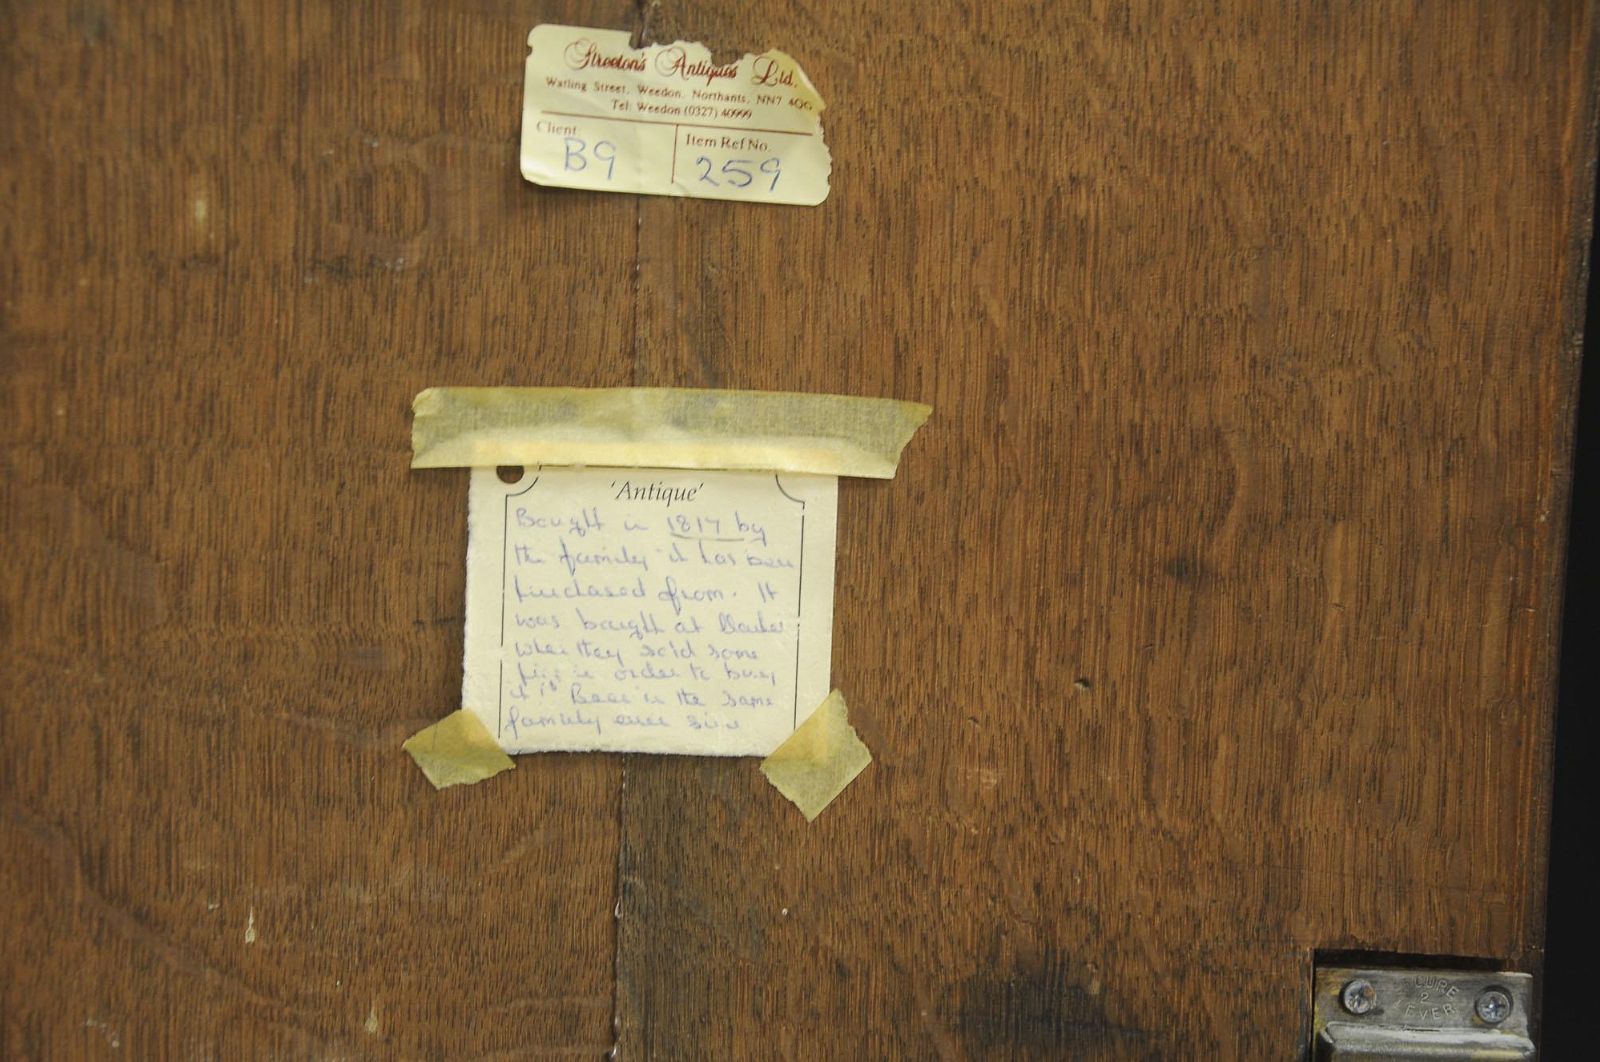 Streeton's Antiques Ltd.
Watling Street, Weedon, Northants, NN7 4QG
Tel: Weedon (0327) 40999
Client
B9
Item Ref No.
259
'Antique'
Bought in 1817 by
the family it has been
purchased from. It
was bought at
when they sold some
in order to buy
it its Been in the same
family ever
2
EVER